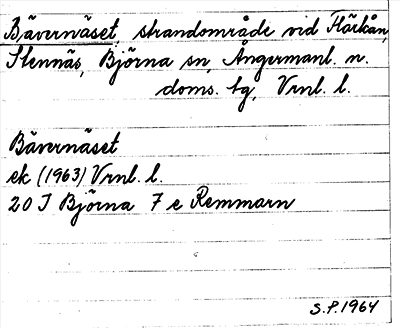 Bävernäset, strandområde vid Flärkån,
Stennäs, Björna sn, Ångermanl. n.
doms. tg, Vrnl. l.
Bävernäset
ek (1963) Vrnl. l.
20 I Björna 7 e Remmarn
S.P. 1964